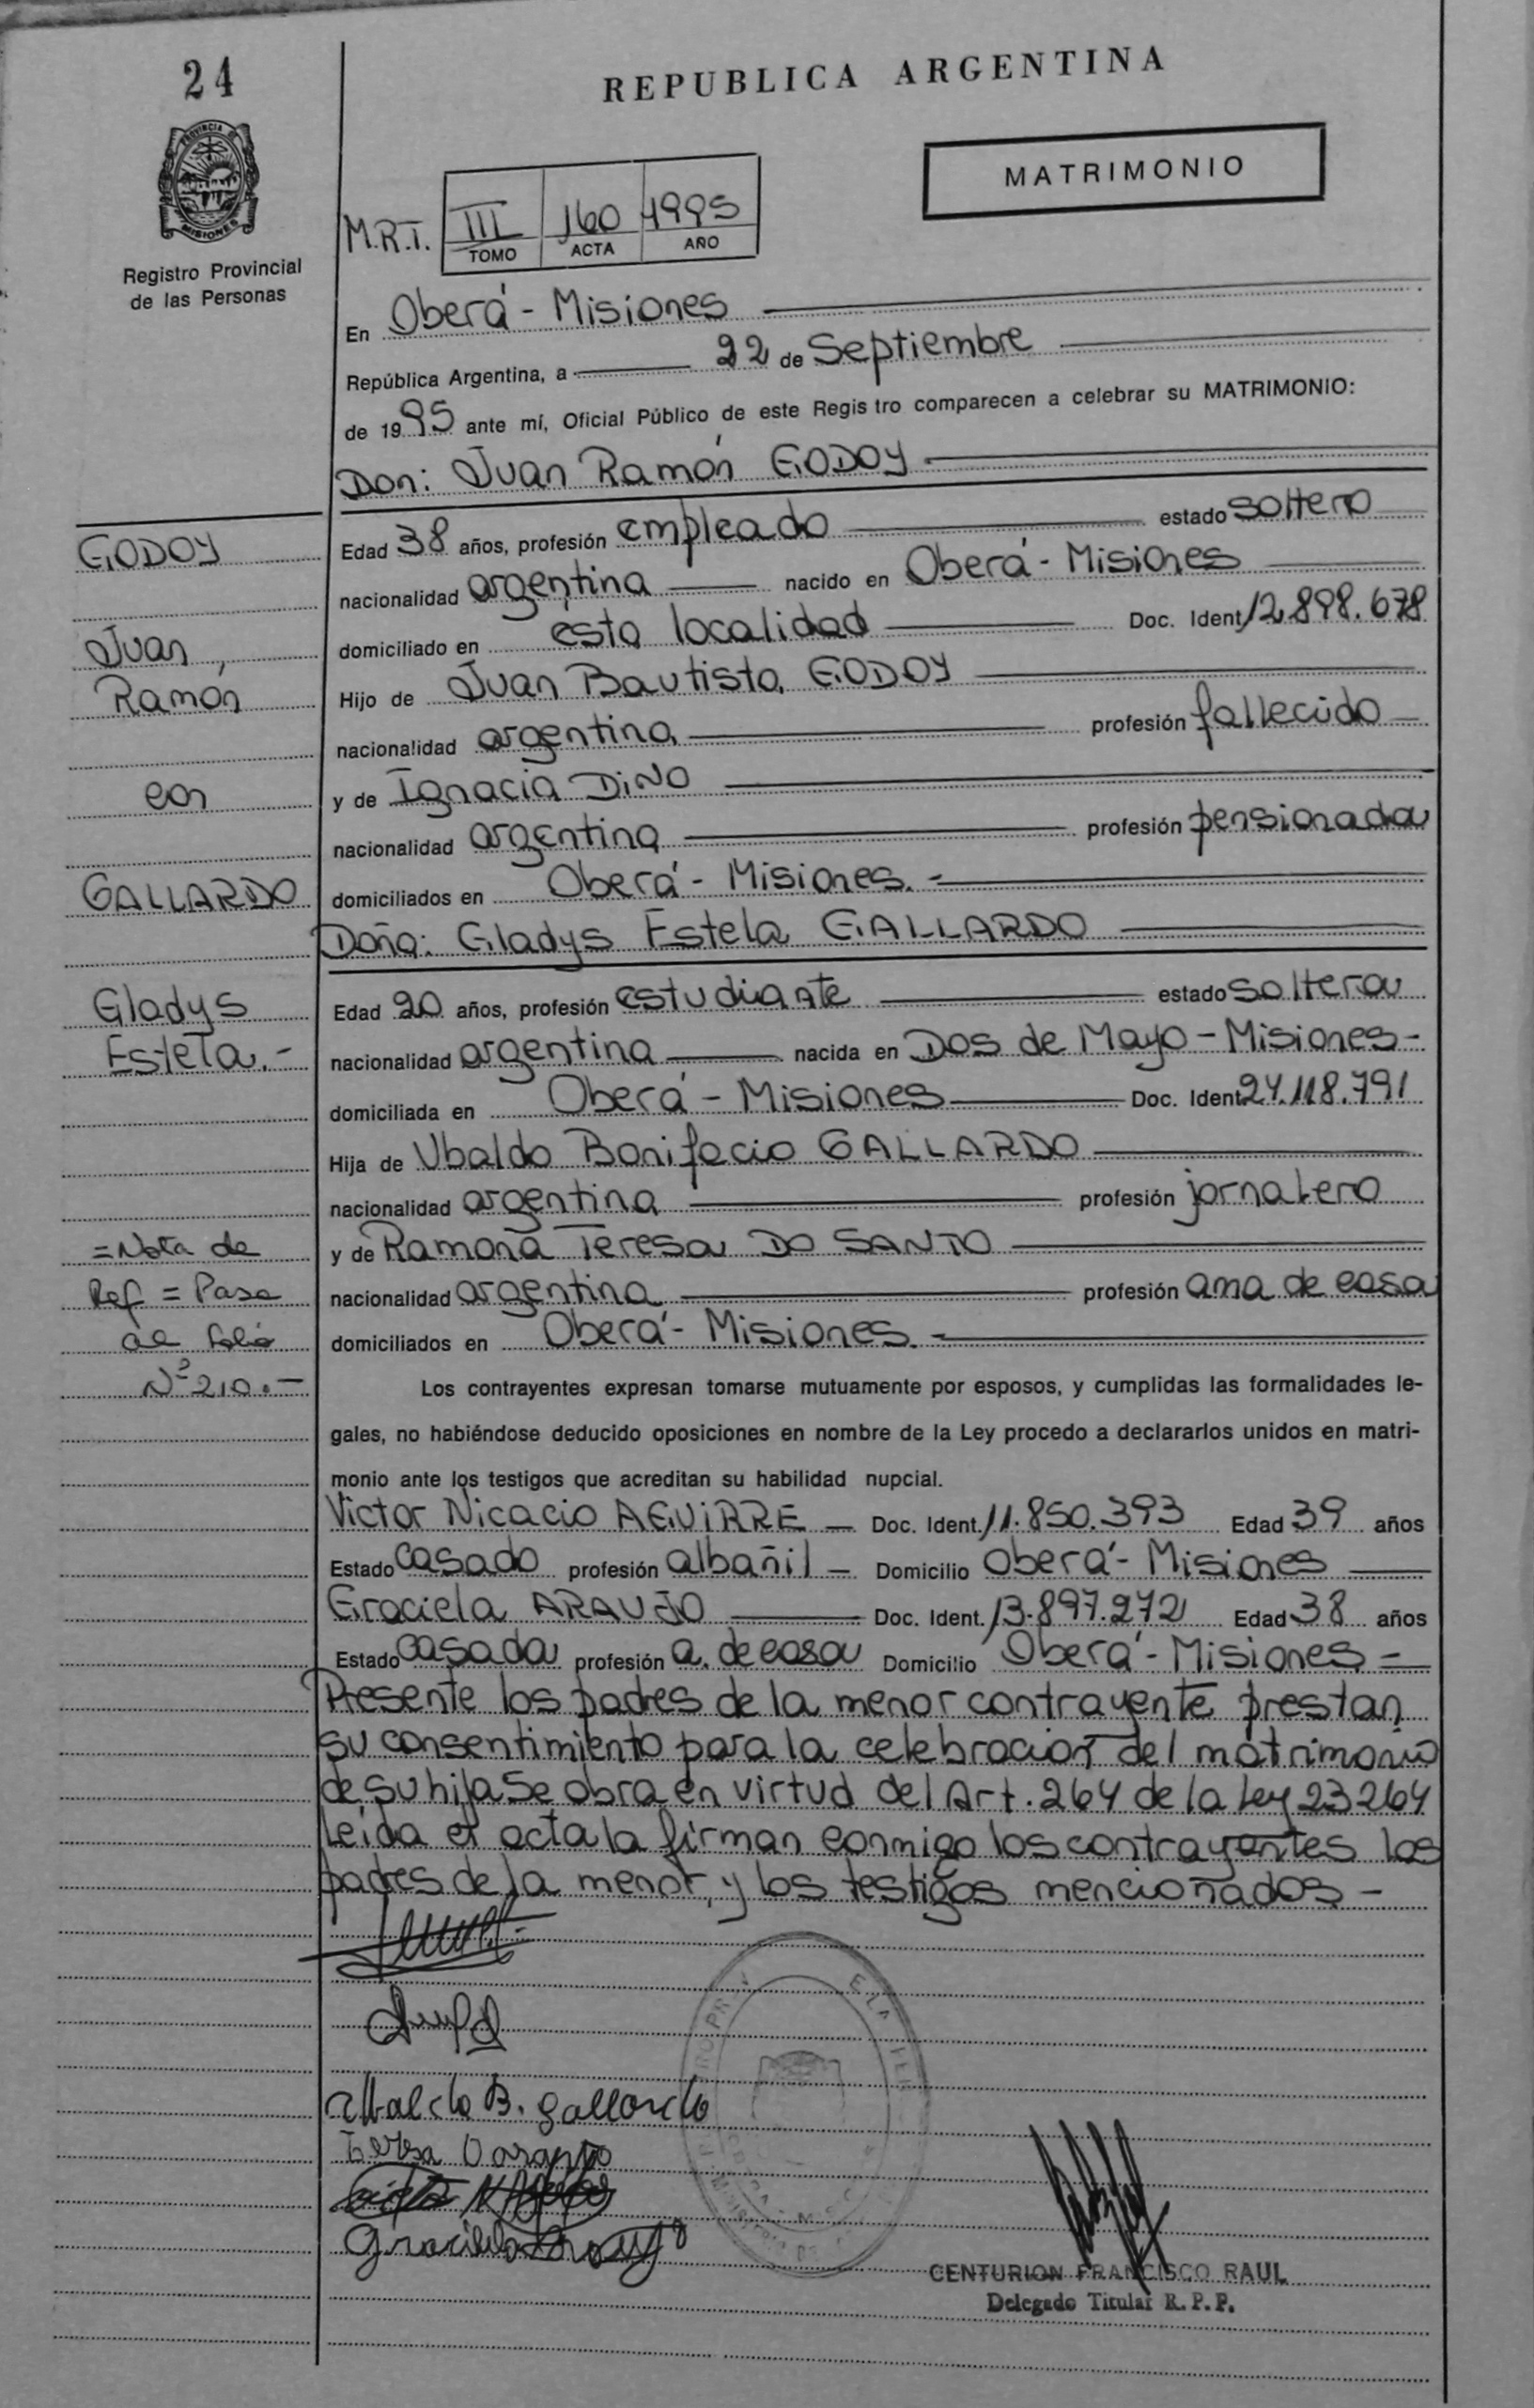 24
REPUBLICA ARGENTINA
PROVINCIA DE
MISIONES
Registro Provincial
de las Personas
MATRIMONIO
M.R.I. III 160 1995
TOMO ACTA AÑO
En Oberá - Misiones
República Argentina, a 22 de Septiembre
de 1995 ante mí, Oficial Público de este Regis tro comparecen a celebrar su MATRIMONIO:
Don: Juan Ramón GODOY
GODOY
Juan,
Ramón
con
GALLARDO
Gladys
Estela.-
=Nota de
Ref = Pasa
al folio
Nº 210.-
Edad 38 años, profesión empleado estado soltero
nacionalidad argentina nacido en Oberá - Misiones
domiciliado en esta localidad Doc. Ident 12.898.678
Hijo de Juan Bautista GODOY
nacionalidad argentina profesión fallecido
y de Ignacia DINO
nacionalidad argentina profesión pensionada
domiciliados en Oberá - Misiones.-
Doña: Gladys Estela GALLARDO
Edad 20 años, profesión estudiante estado soltera
nacionalidad argentina nacida en Dos de Mayo - Misiones-
domiciliada en Oberá - Misiones Doc. Ident 24.118.791
Hija de Ubaldo Bonifacio GALLARDO
nacionalidad argentina profesión jornalero
y de Ramona Teresa DO SANTO
nacionalidad argentina profesión ama de casa
domiciliados en Oberá - Misiones.-
Los contrayentes expresan tomarse mutuamente por esposos, y cumplidas las formalidades le-
gales, no habiéndose deducido oposiciones en nombre de la Ley procedo a declararlos unidos en matri-
monio ante los testigos que acreditan su habilidad nupcial.
Victor Nicacio AGUIRRE - Doc. Ident. 11.850.393 Edad 39 años
Estado casado profesión albañil - Domicilio Oberá - Misiones
Graciela ARAUJO Doc. Ident. 13.897.272 Edad 38 años
Estado casada profesión a. de casa Domicilio Oberá - Misiones =
Presente los padres de la menor contrayente prestan
su consentimiento para la celebración del matrimonio
de su hija Se obra en virtud del Art. 264 de la Ley 23264
Leida el acta la firman conmigo los contrayentes los
padres de la menor, y los testigos mencionados -
Ubaldo B. Gallardo
Teresa
Graciela Araujo
CENTURION FRANCISCO RAUL
Delegado Titular R. P. P.